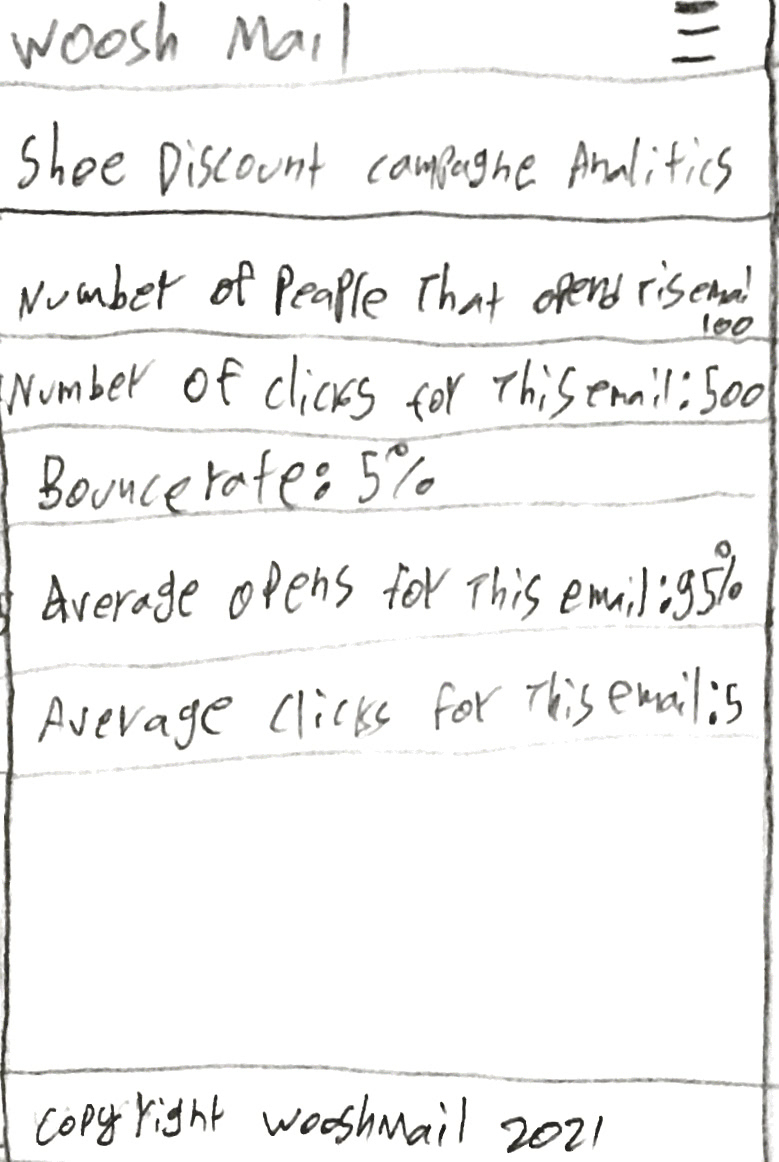 Woosh Mail
Shoe Discount campaghe Analitics
Number of Peaple That opend tis email
100
Number of clicks for This email: 500
Bounce rate: 5%
Average opens for This email: 95%
Average clicks for This email: 5
copyright wooshmail 2021